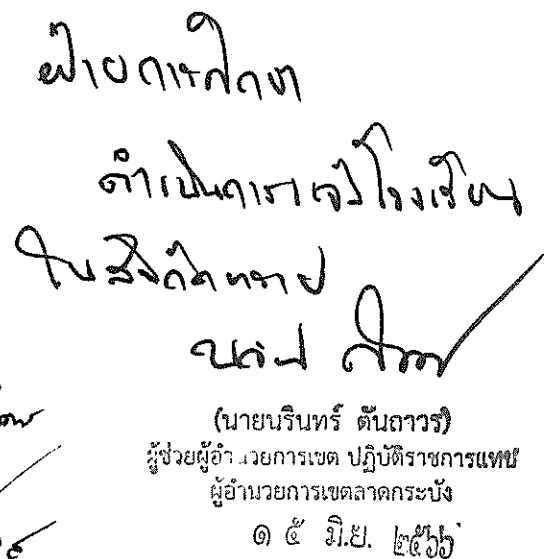 ฝ่ายการศึกษา
ดำเนินการแจ้งโรงเรียน
ในสังกัดทราบ
(นายนรินทร์ ตันถาวร)
ผู้ช่วยผู้อำนวยการเขต ปฏิบัติราชการแทน
ผู้อำนวยการเขตลาดกระบัง
๑ ๕ มิ.ย. ๒๕๖๖